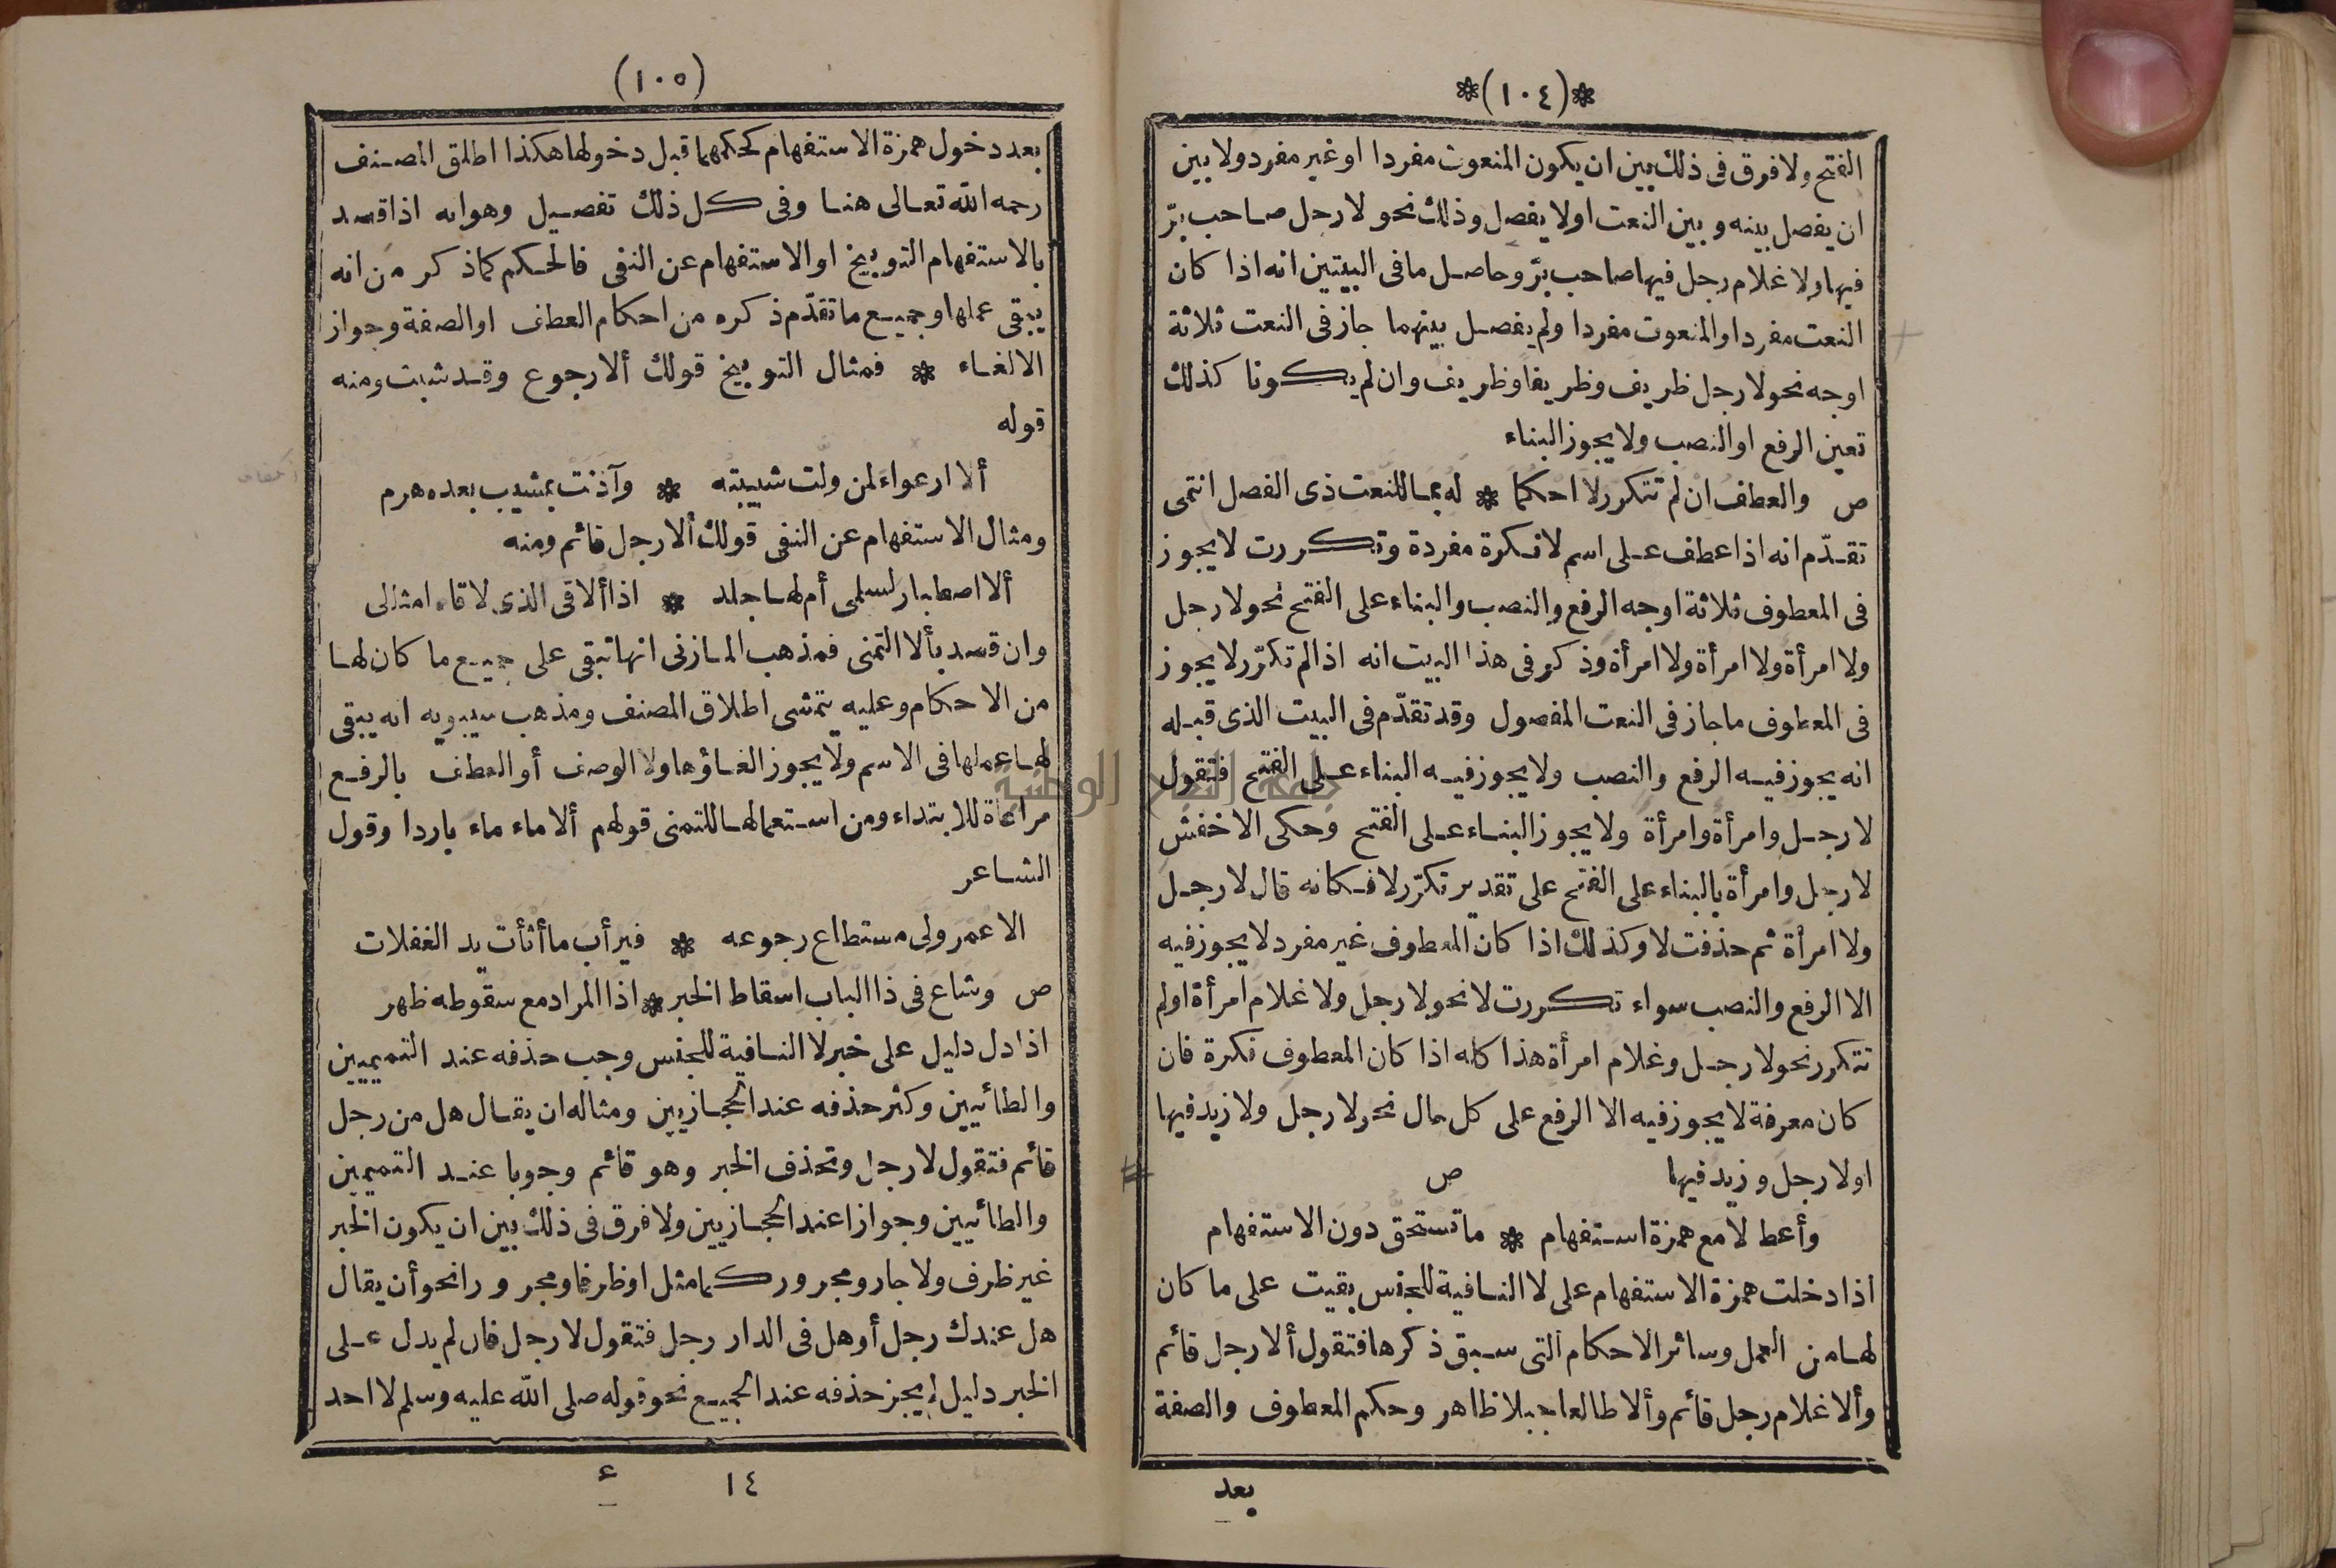 *(١٠٤)*
الفتح ولا فرق فى ذلك بين ان يكون المنعوت مفردا او غير مفرد ولا بين
ان يفصل بينه وبين النعت اولا يفصل وذلك نحو لا رجل صاحب برّ
فيها ولا غلام رجل فيها صاحب برّ وحاصل ما فى البيتين انه اذا كان
النعت مفردا والمنعوت مفردا ولم يفصل بينهما جاز فى النعت ثلاثة
اوجه نحو لا رجل ظريف وظريفا وظريف وان لم يكونا كذلك
تعين الرفع او النصب ولا يجوز البناء
ص والعطف ان لم تتكرر لا احكما * له بما للنعت ذى الفصل انتمى
تقدّم انه اذا عطف على اسم لا نكرة مفردة وتكررت لا يجوز
فى المعطوف ثلاثة اوجه الرفع والنصب والبناء على الفتح نحو لا رجل
ولا امرأة ولا امرأة ولا امرأة وذكر فى هذا البيت انه اذا لم تكرّر لا يجوز
فى المعطوف ما جاز فى النعت المفصول وقد تقدّم فى البيت الذى قبله
انه يجوز فيه الرفع والنصب ولا يجوز فيه البناء على الفتح فتقول
لا رجل وامرأة وامرأة ولا يجوز البناء على الفتح وحكى الاخفش
لا رجل وامرأة بالبناء على الفتح على تقدير تكرّر لا فكانه قال لا رجل
ولا امرأة ثم حذفت لا وكذلك اذا كان المعطوف غير مفرد لا يجوز فيه
الا الرفع والنصب سواء تكررت لا نحو لا رجل ولا غلام امرأة اولم
تتكرر نحو لا رجل وغلام امرأة هذا كله اذا كان المعطوف نكرة فان
كان معرفة لا يجوز فيه الا الرفع على كل حال نحو لا رجل ولا زيد فيها
اولا رجل وزيد فيها ص
وأعط لا مع همزة استفهام * ما تستحق دون الاستفهام
اذا دخلت همزة الاستفهام على لا النافية للجنس بقيت على ما كان
لها من العمل وسائر الاحكام التى سبق ذكرها فتقول ألا رجل قائم
وألا غلام رجل قائم وألا طالعا جبلا ظاهر وحكم المعطوف والصفة
بعد
(١٠٥)
بعد دخول همزة الاستفهام كحكمهما قبل دخولها هكذا اطلق المصنف
رحمه الله تعالى هنا وفى كل ذلك تفصيل وهو انه اذا قصد
بالاستفهام التوبيخ او الاستفهام عن النفى فالحكم كما ذكر من انه
يبقى عملها وجميع ما تقدّم ذكره من احكام العطف او الصفة وجواز
الالغاء * فمثال التوبيخ قولك ألا رجوع وقد شبت ومنه
قوله
ألا ارعواء لمن ولت شبيبته * وآذنت بمشيب بعده هرم
ومثال الاستفهام عن النفى قولك ألا رجل قائم ومنه
ألا اصطبار لسلمى أم لها جلد * اذا ألاقى الذى لاقاه امثالى
وان قصد بألا التمنى فمذهب المازنى انها تبقى على جميع ما كان لها
من الاحكام وعليه يتمشى اطلاق المصنف ومذهب سيبويه انه يبقى
لها عملها فى الاسم ولا يجوز الغاؤها ولا الوصف أو العطف بالرفع
مراعاة للابتداء ومن استعمالها للتمنى قولهم ألا ماء ماء باردا وقول
الشاعر
الا عمر ولى مستطاع رجوعه * فيرأب ما أثأت يد الغفلات
ص وشاع فى ذا الباب اسقاط الخبر * اذا المراد مع سقوطه ظهر
اذا دل دليل على خبر لا النافية للجنس وجب حذفه عند التميميين
والطائيين وكثر حذفه عند الحجازيين ومثاله ان يقال هل من رجل
قائم فتقول لا رجل وتحذف الخبر وهو قائم وجوبا عند التميميين
والطائيين وجوازا عند الحجازيين ولا فرق فى ذلك بين ان يكون الخبر
غير ظرف ولا جار ومجرور كما مثل او ظرفا ومجرورا نحو أن يقال
هل عندك رجل أو هل فى الدار رجل فتقول لا رجل فان لم يدل على
الخبر دليل لم يجز حذفه عند الجميع نحو قوله صلى الله عليه وسلم لا احد
١٤ ع
جامعة النجاح الوطنية